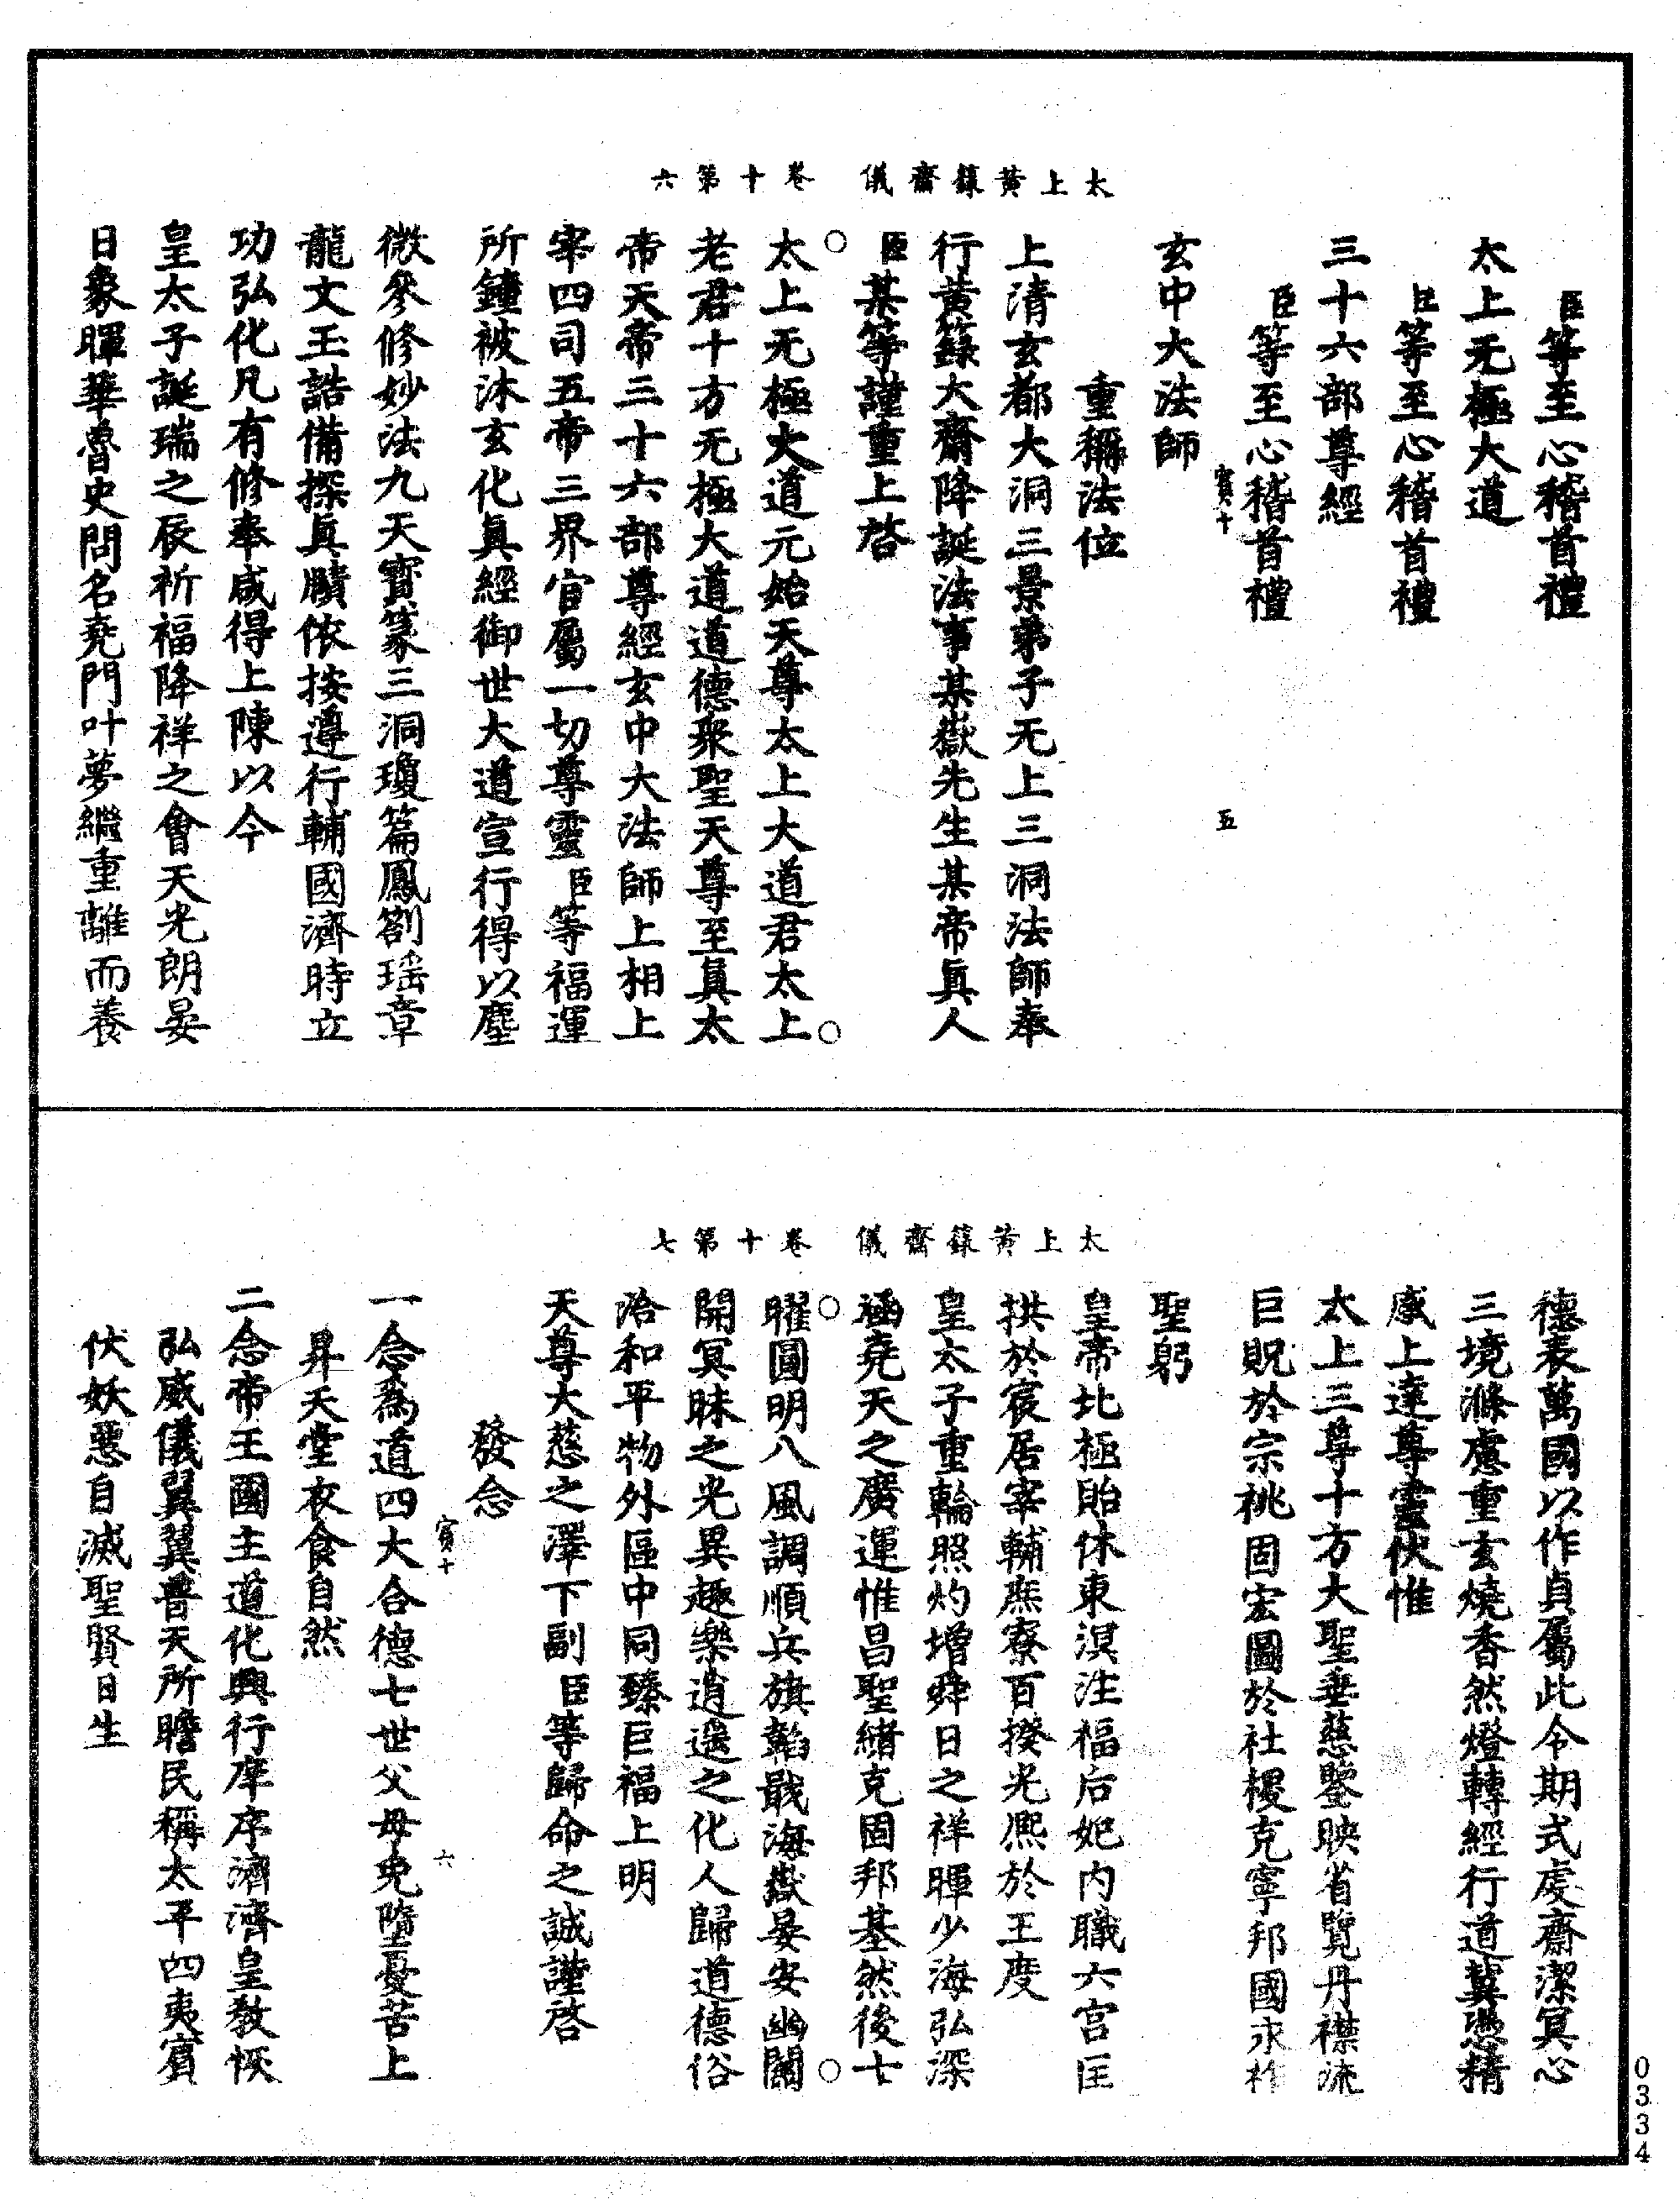 太上黃籙齋儀　卷十第六
臣等至心稽首禮
太上无極大道
臣等至心稽首禮
三十六部尊經
臣等至心稽首禮
賓十　五
玄中大法師
重稱法位
上清玄都大洞三景弟子无上三洞法師奉
行黃籙大齋降誕法事某嶽先生某帝眞人
臣某等謹重上啓
太上无極大道元始天尊太上大道君太上
老君十方无極大道道德衆聖天尊至眞太
帝天帝三十六部尊經玄中大法師上相上
宰四司五帝三界官屬一切尊靈臣等福運
所鍾被沐玄化眞經御世大道宣行得以塵
微參修妙法九天寶篆三洞瓊篇鳳劄瑤章
龍文玉誥備探眞賾依按遵行輔國濟時立
功弘化凡有修奉咸得上陳以今
皇太子誕瑞之辰祈福降祥之會天光朗晏
日象暉華魯史問名堯門叶夢繼重離而養
太上黃籙齋儀　卷十第七
德表萬國以作貞屬此令期式虔齋潔冥心
三境滌慮重玄燒香然燈轉經行道冀憑精
感上達尊靈伏惟
太上三尊十方大聖垂慈鑒映省覽丹襟流
巨貺於宗祧固宏圖於社稷克寧邦國永祚
聖躬
皇帝北極貽休東溟注福后妃內職六宮匡
拱於宸居宰輔庶寮百揆光熙於王度
皇太子重輪照灼增舜日之祥暉少海弘深
涵堯天之廣運惟昌聖緒克固邦基然後七
曜圓明八風調順兵旗韜戢海嶽晏安幽關
開冥昧之光異趣樂逍遙之化人歸道德俗
洽和平物外區中同臻巨福上明
天尊大慈之澤下副臣等歸命之誠謹啓
發念
賓十　六
一念爲道四大合德七世父母免墮憂苦上
昇天堂衣食自然
二念帝王國主道化興行庠序濟濟皇教恢
弘威儀翼翼普天所瞻民稱太平四夷賓
伏妖惡自滅聖賢日生
0334